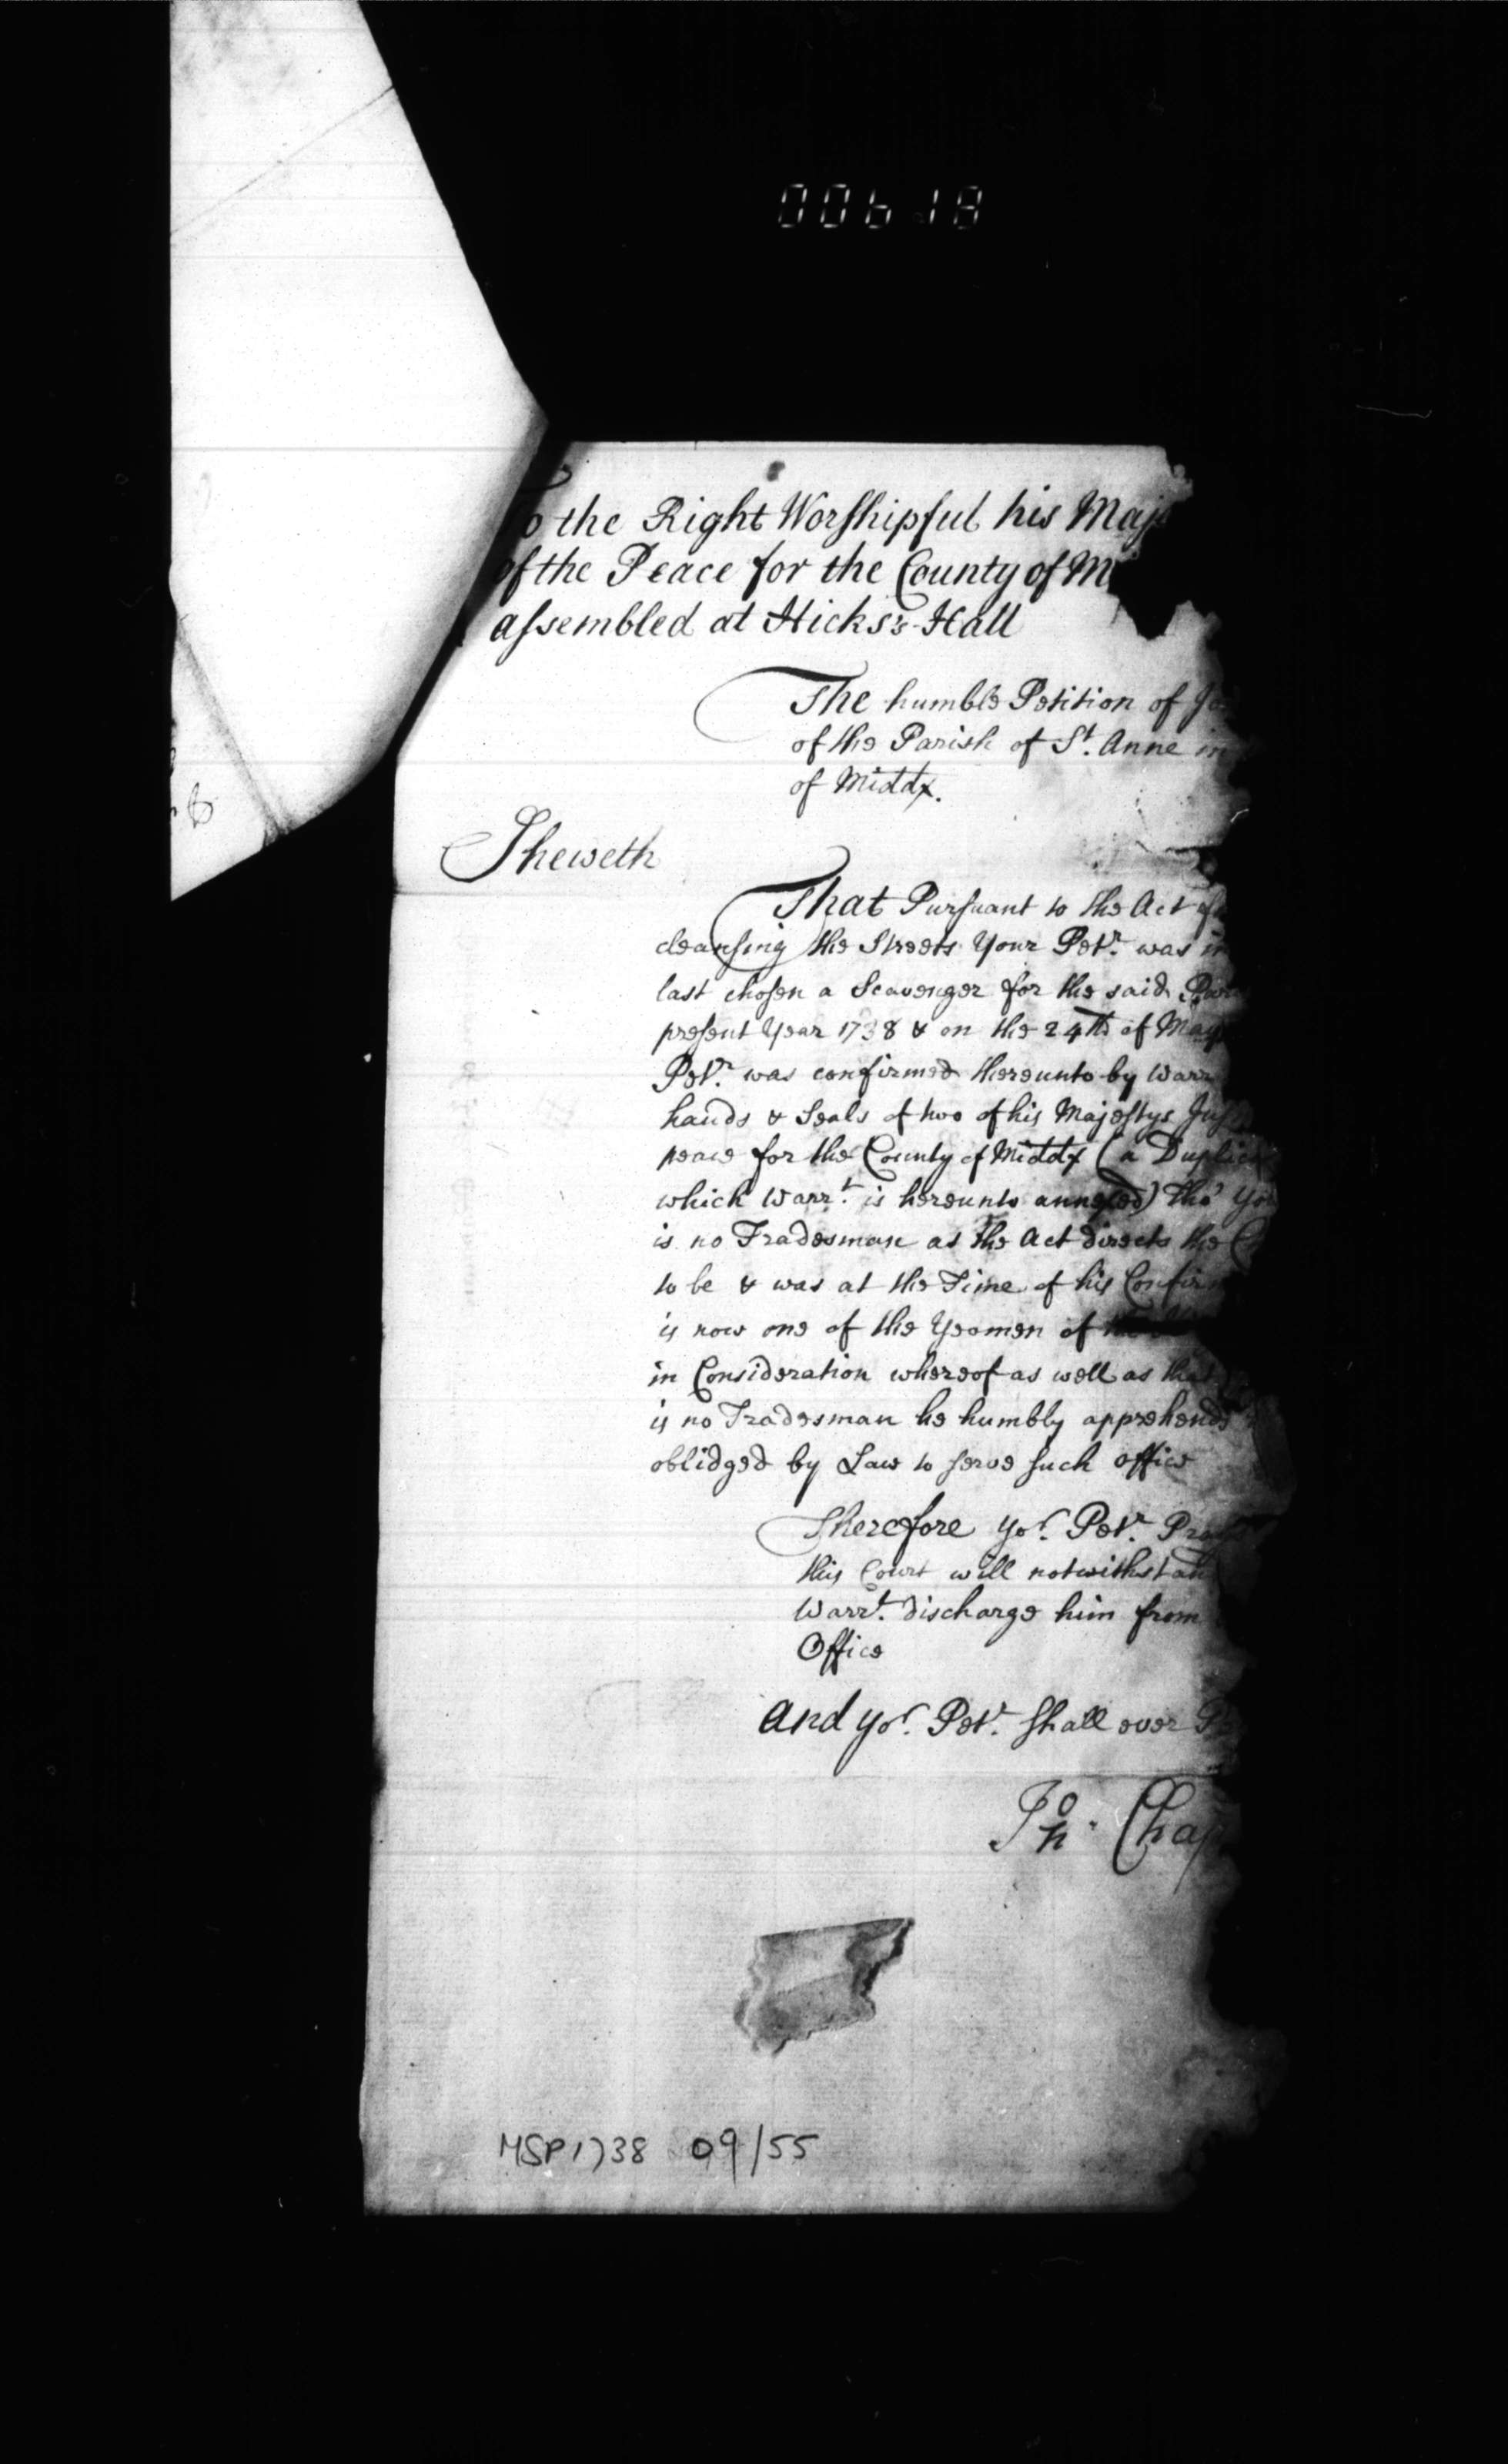 00618
To the Right Worshipful his Maj
of the Peace for the County of Mi
assembled at Hicks's-Hall
The humble Petition of Jo
of the Parish of St. Anne in
of Middx.
Sheweth
That Pursuant to the Act
cleansing the Streets Your Petr. was in
last chosen a Scavenger for the said
present Year 1738 & on the 24th of May
Petr. was confirmed thereunto by Warr
hands & Seals of two of his Majestys Jus
peace for the County of Middx (a Duplica
which Warrt. is hereunto annexed) tho' yo
is no Tradesman as the Act directs the
to be & was at the Time of his Confirm
is now one of the Yeomen of
in Consideration whereof as well as that
is no Tradesman he humbly apprehends
oblidged by Law to serve such office
Therefore yor. Petr. Pray
this Court will notwithstand
Warrt. discharge him from
Office
And yor. Petr. shall ever P
Jno. Chap
MSP1738 09/55